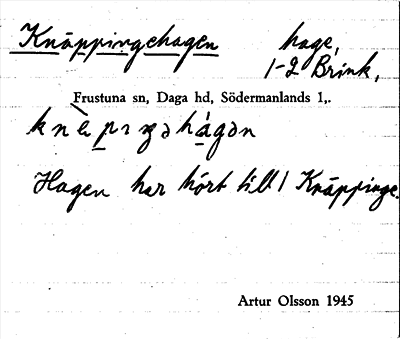 Knäppingehagen hage,
1-2 Brink,
Frustuna sn, Daga hd, Södermanlands l,.
Hagen har hört till Knäppinge.
Artur Olsson 1945